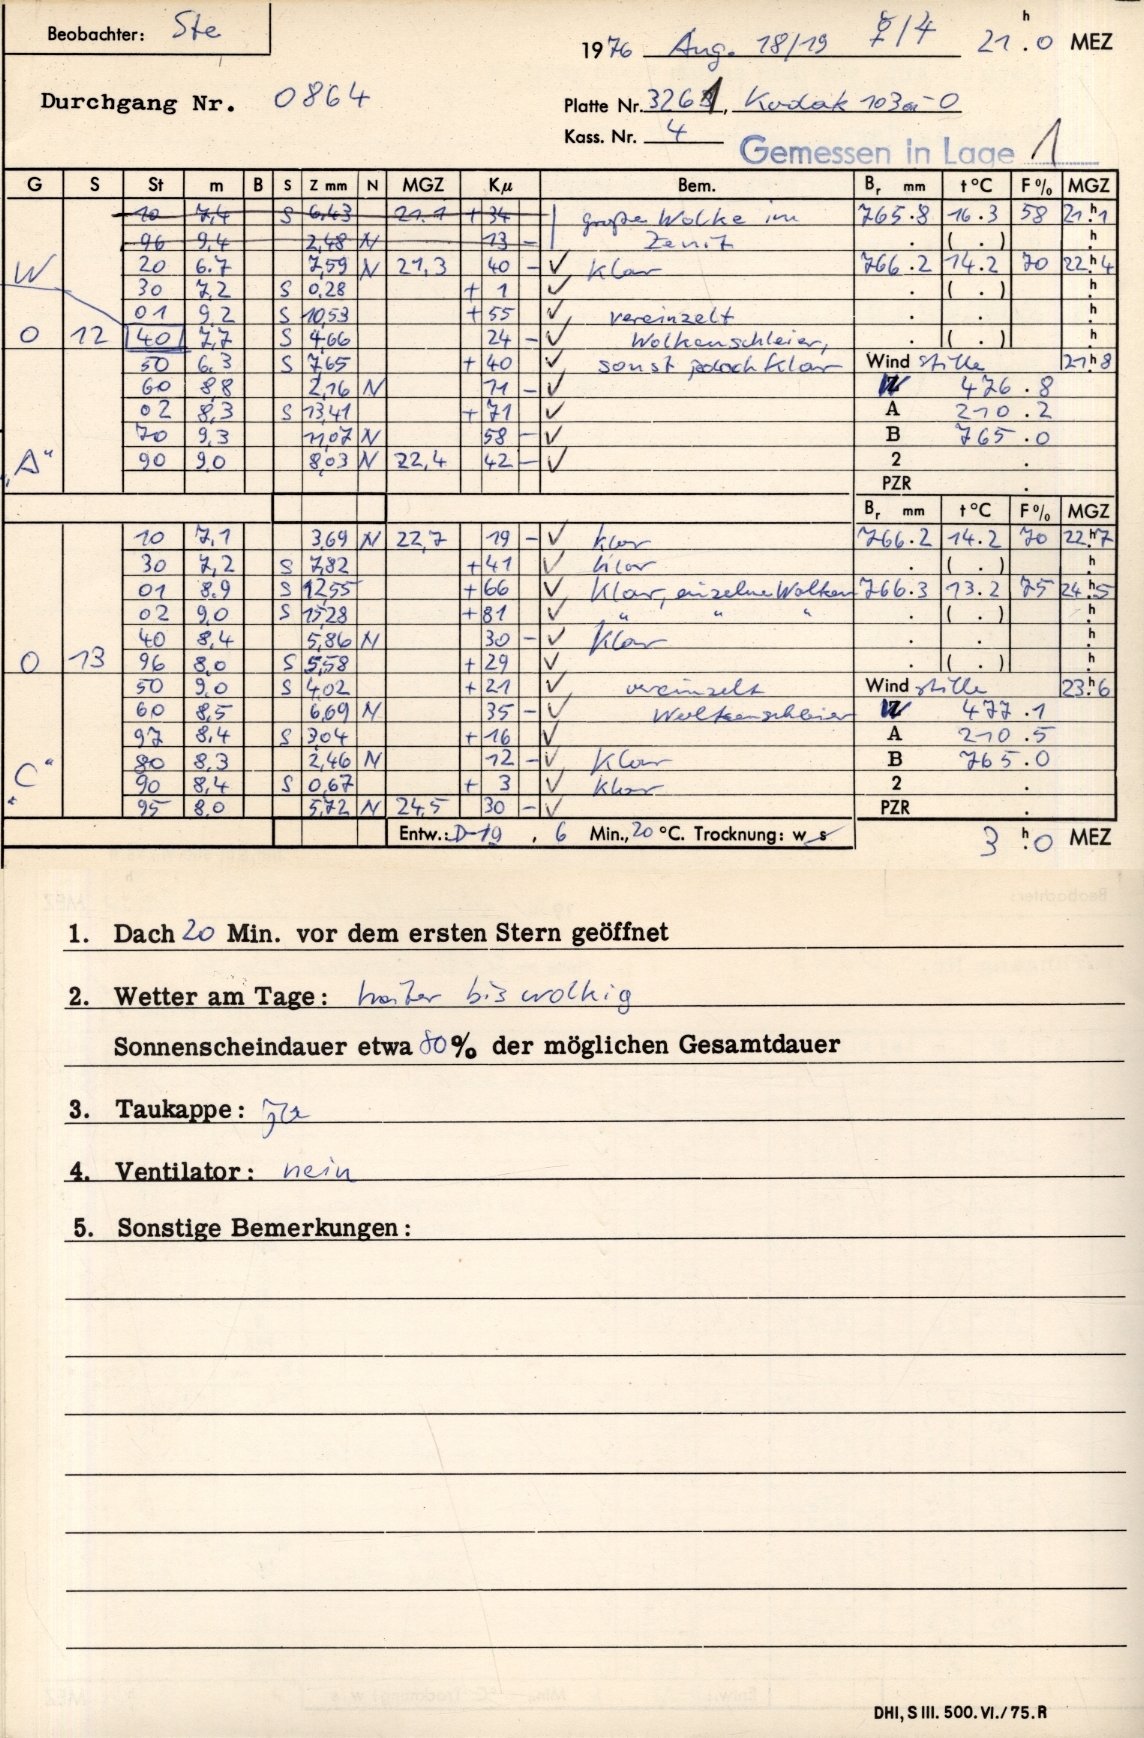 Beobachter: Ste
1976 Aug. 18/19 ☿/♃ 21 h . 0 MEZ
Durchgang Nr. 0864
Platte Nr. 3261, Kodak 103a-O
Kass. Nr. 4
Gemessen in Lage 1
G S St m B S Z mm N MGZ Kμ Bem. Br mm t °C F % MGZ
10 7,4 S 6,43 21.1 + 34 große Wolke im 765.8 16.3 58 21 h 1
96 9,4 2,48 N 13 - Zenit . ( . ) h
W 20 6.7 7,59 N 21,3 40 - ✓ Klar 766.2 14.2 70 22 h 4
30 7,2 S 0,28 + 1 ✓ . ( . ) h
01 9,2 S 10,53 + 55 ✓ vereinzelt . . h
O 12 40 7,7 S 4,66 24 - ✓ Wolkenschleier, . ( . ) h
50 6,3 S 7,65 + 40 ✓ sonst jedoch Klar Wind stille 21 h 8
60 8,8 2,16 N 11 - ✓ 476.8
02 8,3 S 13,41 + 71 ✓ A 210.2
70 9,3 11,07 N 58 - ✓ B 765.0
„A“ 90 9,0 8,03 N 22,4 42 - ✓ 2 .
PZR .
Br mm t °C F % MGZ
10 7,1 3,69 N 22,7 19 - ✓ klar 766.2 14.2 70 22 h 7
30 7,2 S 7,82 + 41 ✓ klar . ( . ) h
01 8.9 S 12,55 + 66 ✓ Klar, einzelne Wolken 766.3 13.2 75 24 h 5
02 9,0 S 15,28 + 81 ✓ " " " . ( . ) h
40 8,4 5,86 N 30 - ✓ Klar . . h
O 13 96 8,0 S 5,58 + 29 ✓ . ( . ) h
50 9,0 S 4,02 + 21 ✓ vereinzelt Wind stille 23 h 6
60 8,5 6,69 N 35 - ✓ Wolkenschleier 477.1
97 8,4 S 3,04 + 16 ✓ A 210.5
80 8,3 2,46 N 12 - ✓ Klar B 765.0
„C“ 90 8,4 S 0,67 + 3 ✓ klar 2 .
95 8,0 5,72 N 24,5 30 - ✓ PZR .
Entw.: D-19, 6 Min., 20 °C. Trocknung: w s 3 h . 0 MEZ
1. Dach 20 Min. vor dem ersten Stern geöffnet
2. Wetter am Tage: heiter bis wolkig
Sonnenscheindauer etwa 80% der möglichen Gesamtdauer
3. Taukappe: ja
4. Ventilator: nein
5. Sonstige Bemerkungen:
DHI, S III. 500. VI./75. R